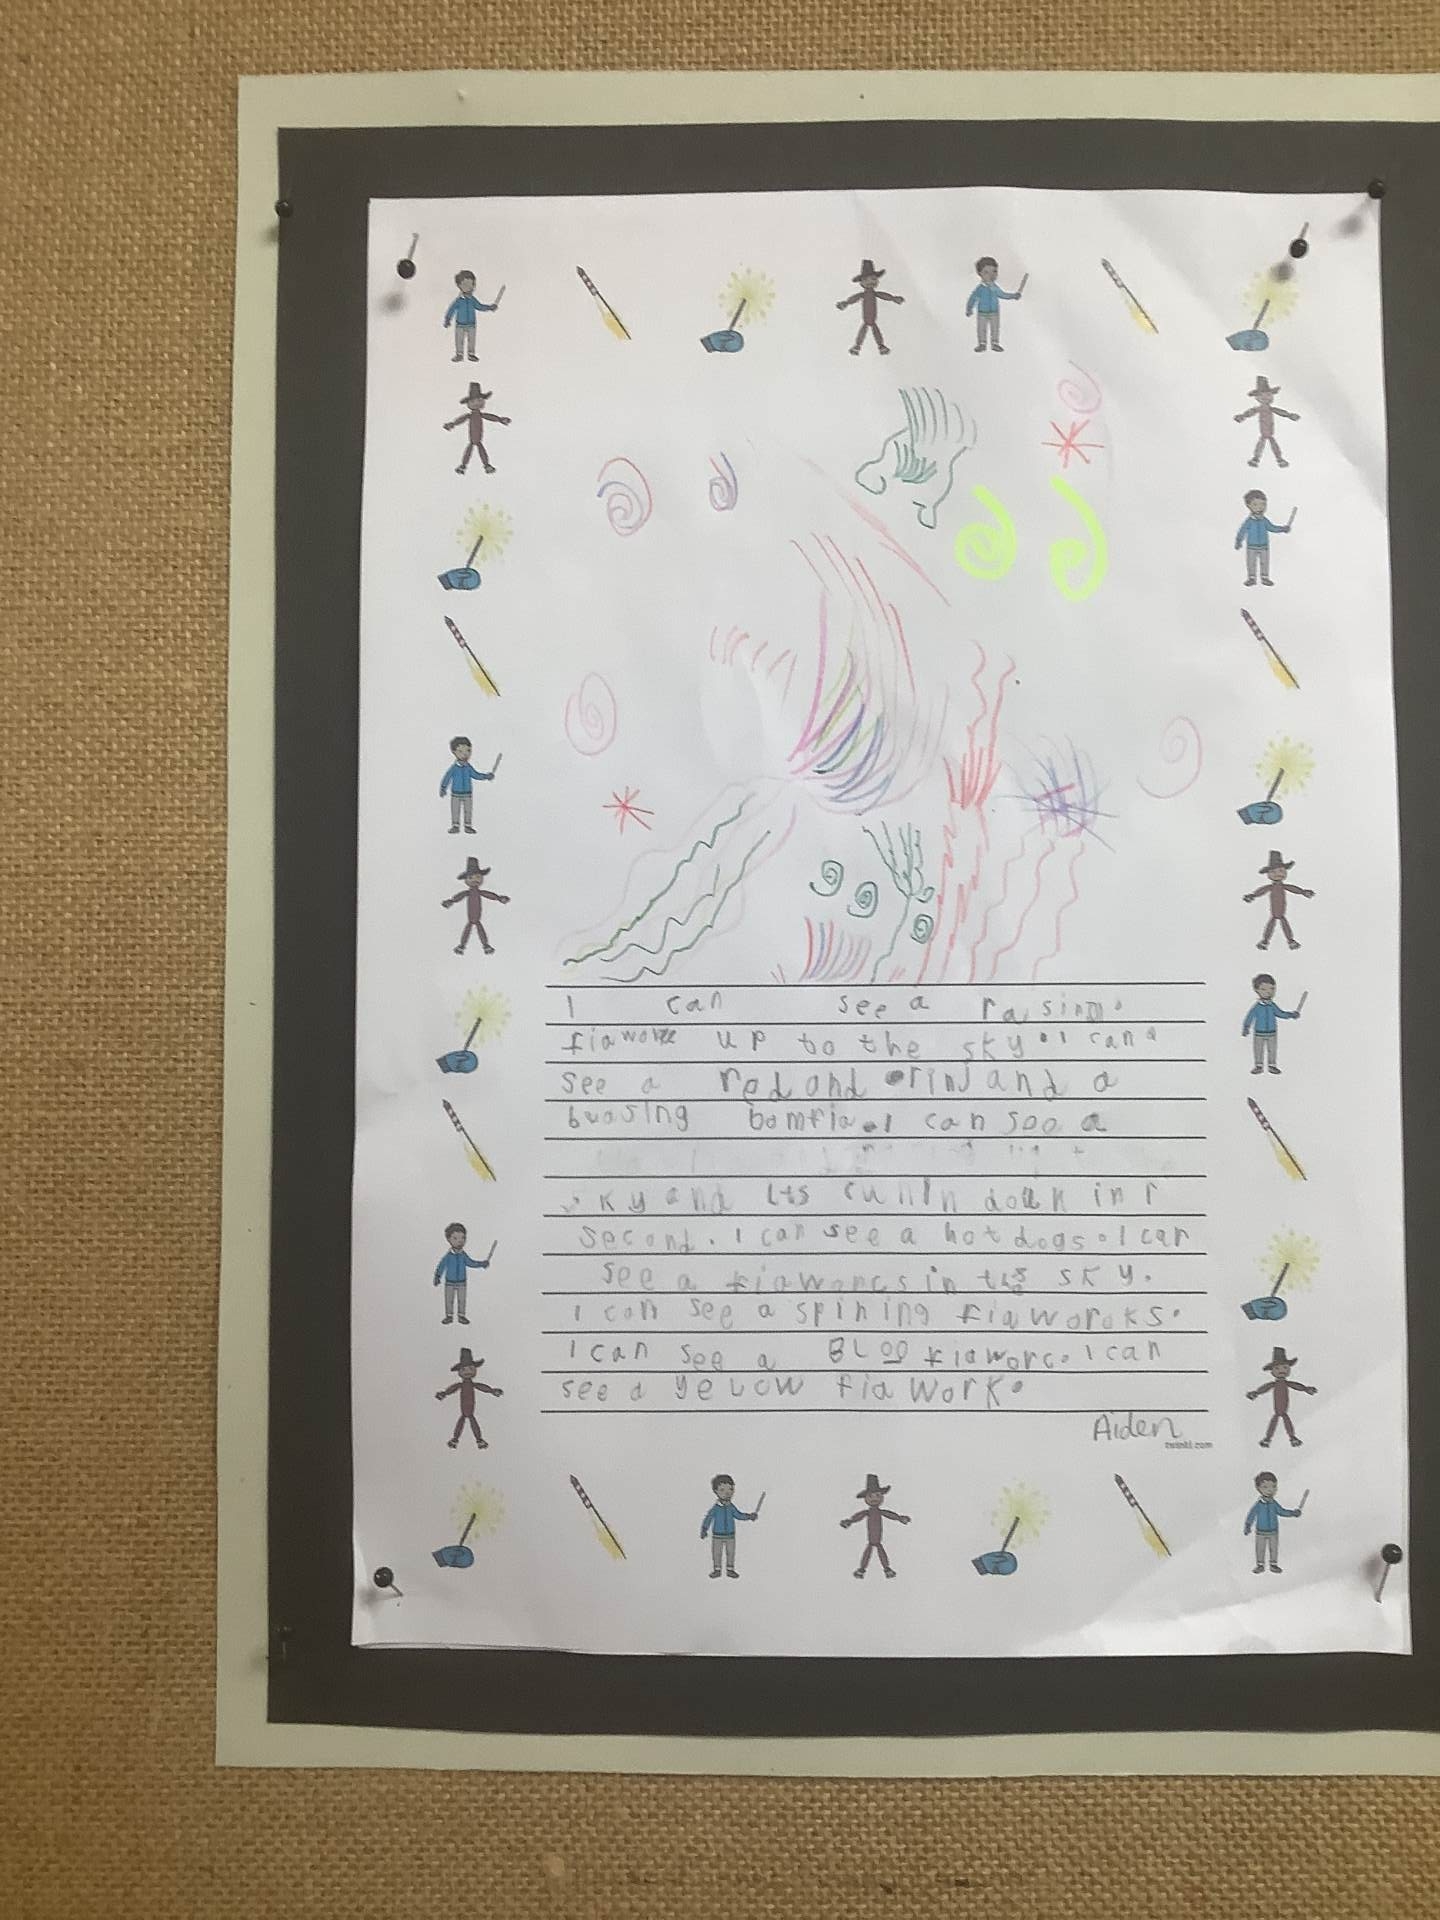 I can see a raising.
fiawork up to the sky. I can a
see a red and orinj and a
buosing bomfia. I can soo a
sky and its cunin douk in 1
second. I can see a hot dogs. I can
see a fiaworcs in the sky.
I can see a spining fiaworoks.
I can see a BLOO fiaworc. I can
see a yelow fiawork.
Aiden
twinkl.com